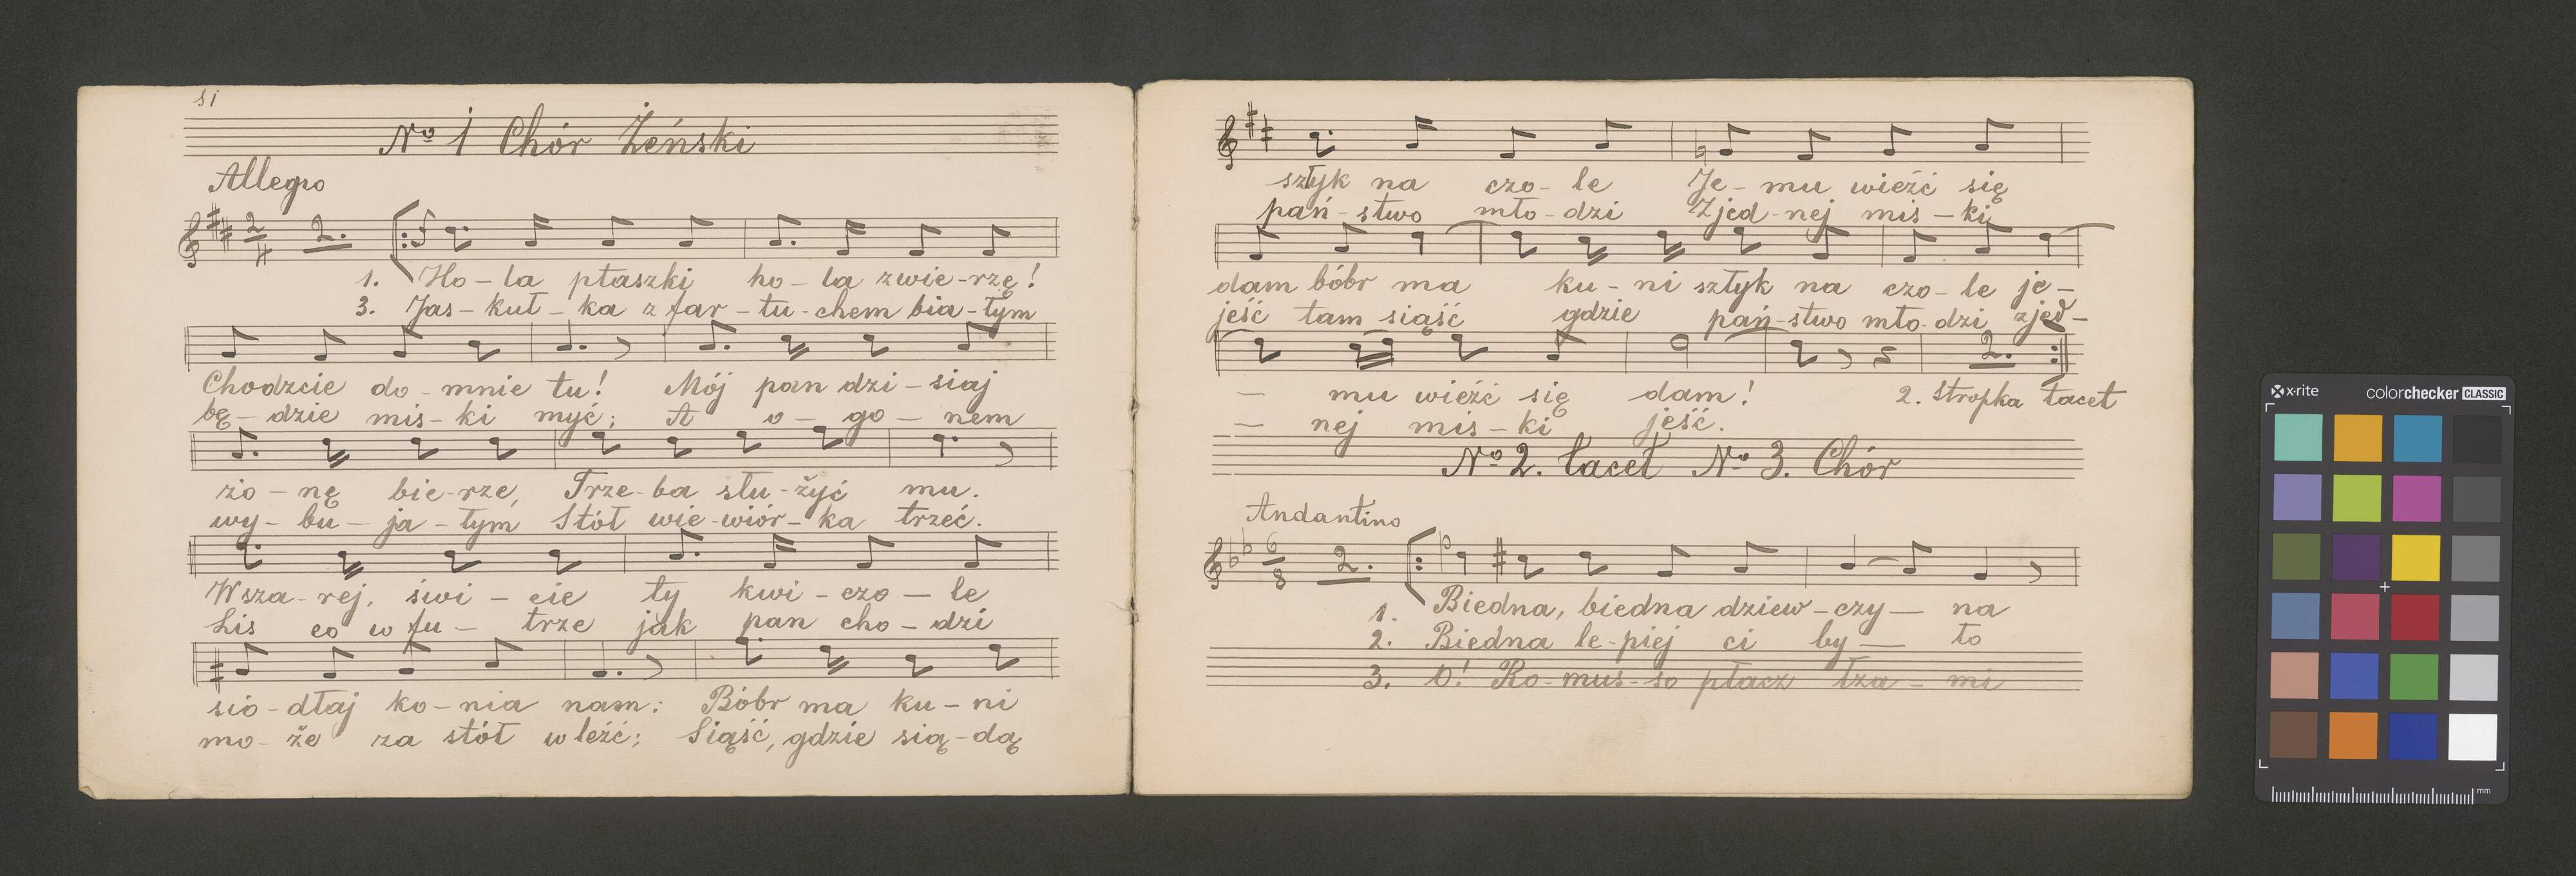 si
No 1 Chór Żeński
Allegro
2.
1. Ho-la ptaszki ho-la zwie-rzę!
3. Jas-kuł-ka z far-tu-chem bia-łym
Chodzcie do-mnie tu! Mój pan dzi-siaj
bę-dzie mis-ki myć; A o-go-nem
żo-nę bie-rze, Trze-ba słu-żyć mu.
wy-bu-ja-łym Stół wie-wiór-ka trzeć.
W sza-rej, świ-cie ty kwi-czo-le
Lis co w fu-trze jak pan cho-dzi
sio-dłaj ko-nia nam: Bóbr ma ku-ni
mo-że za stół wleźć; Siąść, gdzie sią-dą
sztyk na czo-le Je-mu wieźć się
pań-stwo mło-dzi Zjed-nej mis-ki
dam bóbr ma ku-ni sztyk na czo-le je-
jeść tam siąść gdzie pań-stwo mło-dzi zjed-
2.
- mu wieźć się dam! 2. Strofka tacet
- nej mis-ki jeść.
No 2. tacet No 3. Chór
Andantino
6
8
2.
1. Biedna, biedna dziew-czy- na
2. Biedna le-piej ci by- ło
3. O! Ro-mus-so płacz łza-mi
x-rite colorchecker CLASSIC
mm